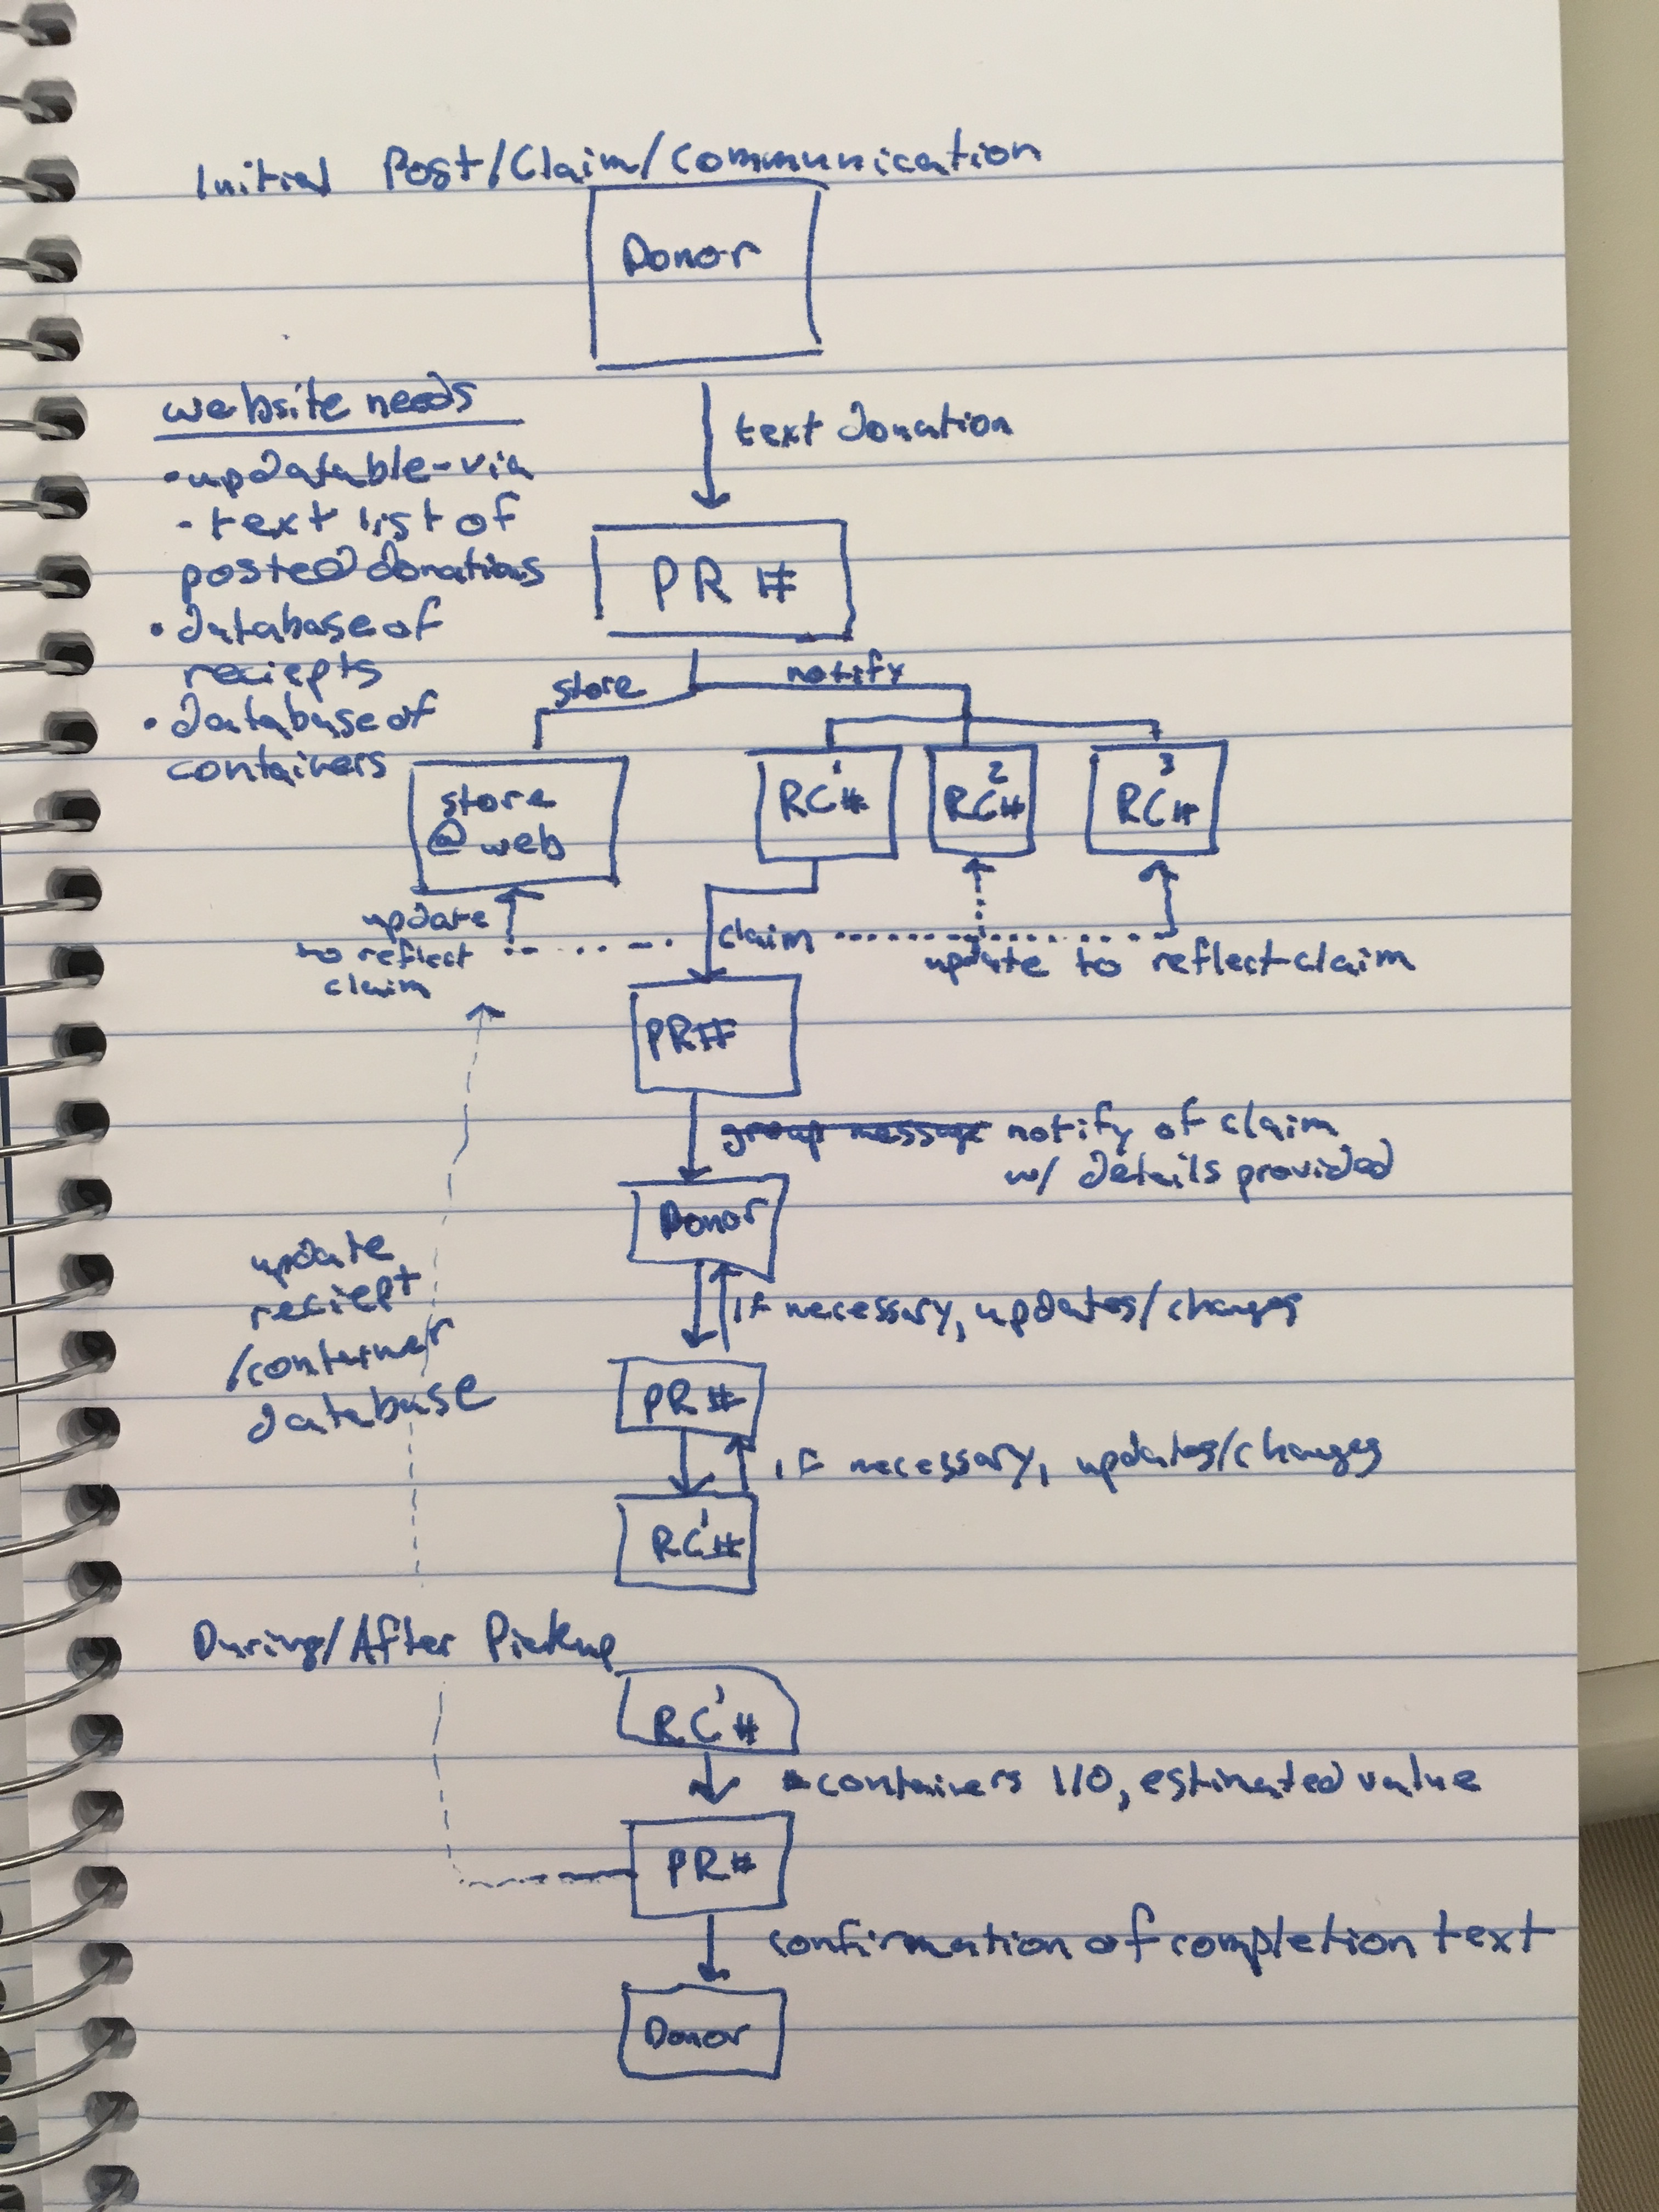 Initial Post/Claim/Communication
Donor
text donation
website needs
• updatable-via
- text list of
posted donations
• database of
reciepts
• database of
containers
PR #
store
notify
store
@ web
RC1#
RC2#
RC3#
update
to reflect
claim
claim
update to reflect claim
PR#
group message notify of claim
w/ details provided
Donor
if necessary, updates/changes
update
reciept
/container
database
PR #
if necessary, updates/changes
RC1#
During/After Pickup
RC1#
containers I/O, estimated value
PR#
confirmation of completion text
Donor